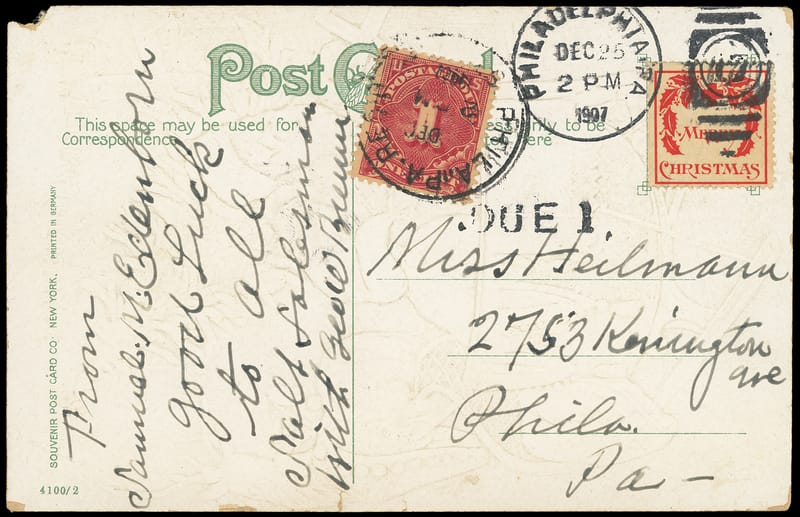 Post C
This space may be used for
Correspondence
essarily to be
ere
POSTAGE DUE
1
ONE CENT
PHILA. PA.
DEC
PM
PHILADELPHIA PA
DEC 25
2 PM
1907
MERRY
CHRISTMAS
DUE 1
Miss Heilmann
2753 Kenington
ave
Phila.
Pa —
From
Samuel. M. Edenborn
good Luck
to all
Salt Salesman
with Geo W
SOUVENIR POST CARD CO. NEW YORK. PRINTED IN GERMANY
4100/2